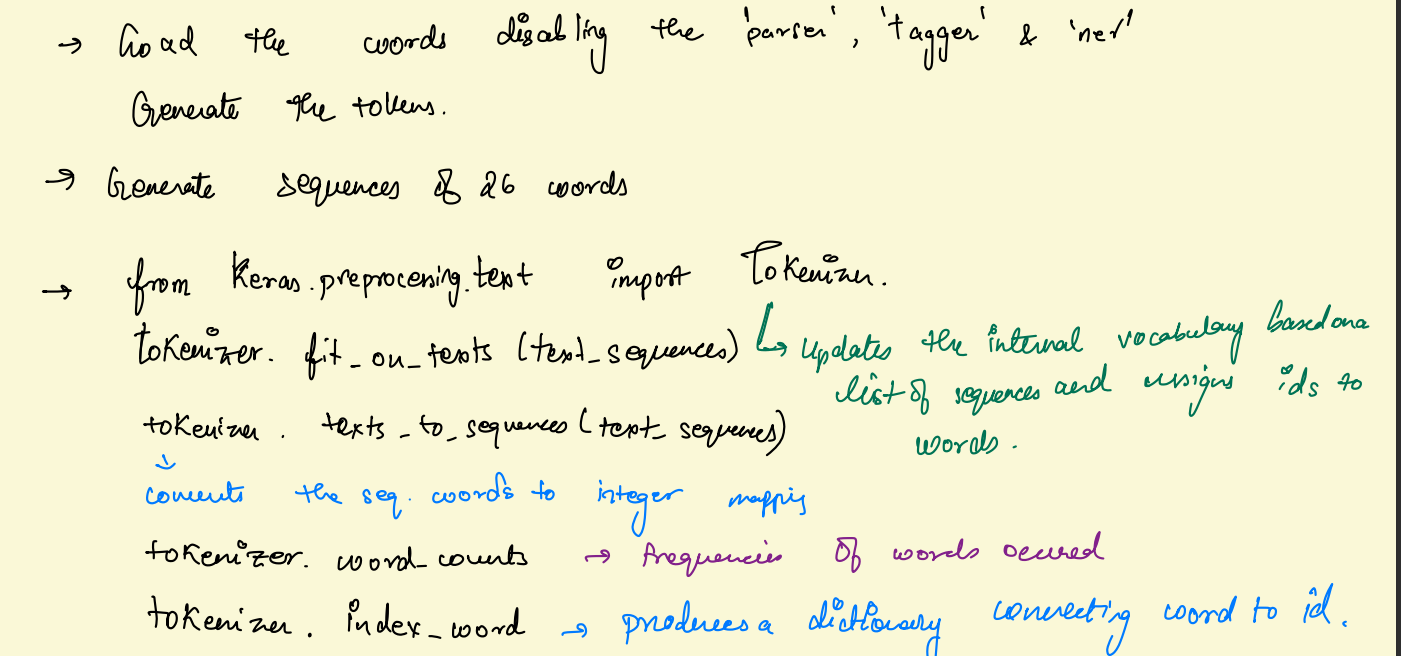 → Load the words disabling the 'parser', 'tagger' & 'ner'
Generate the tokens.
→ Generate sequences of 26 words
→ from Keras.preprocessing.text import Tokenizer.
tokenizer. fit_on_texts (text_sequences) ↳ Updates the internal vocabulary based on a
list of sequences and assigns ids to
words.
tokenizer. texts_to_sequences (text_sequences)
↓
converts the seq. words to integer mappig
tokenizer. word_counts → frequencies of words occured
tokenizer. index_word → produces a dictionary connecting word to id.